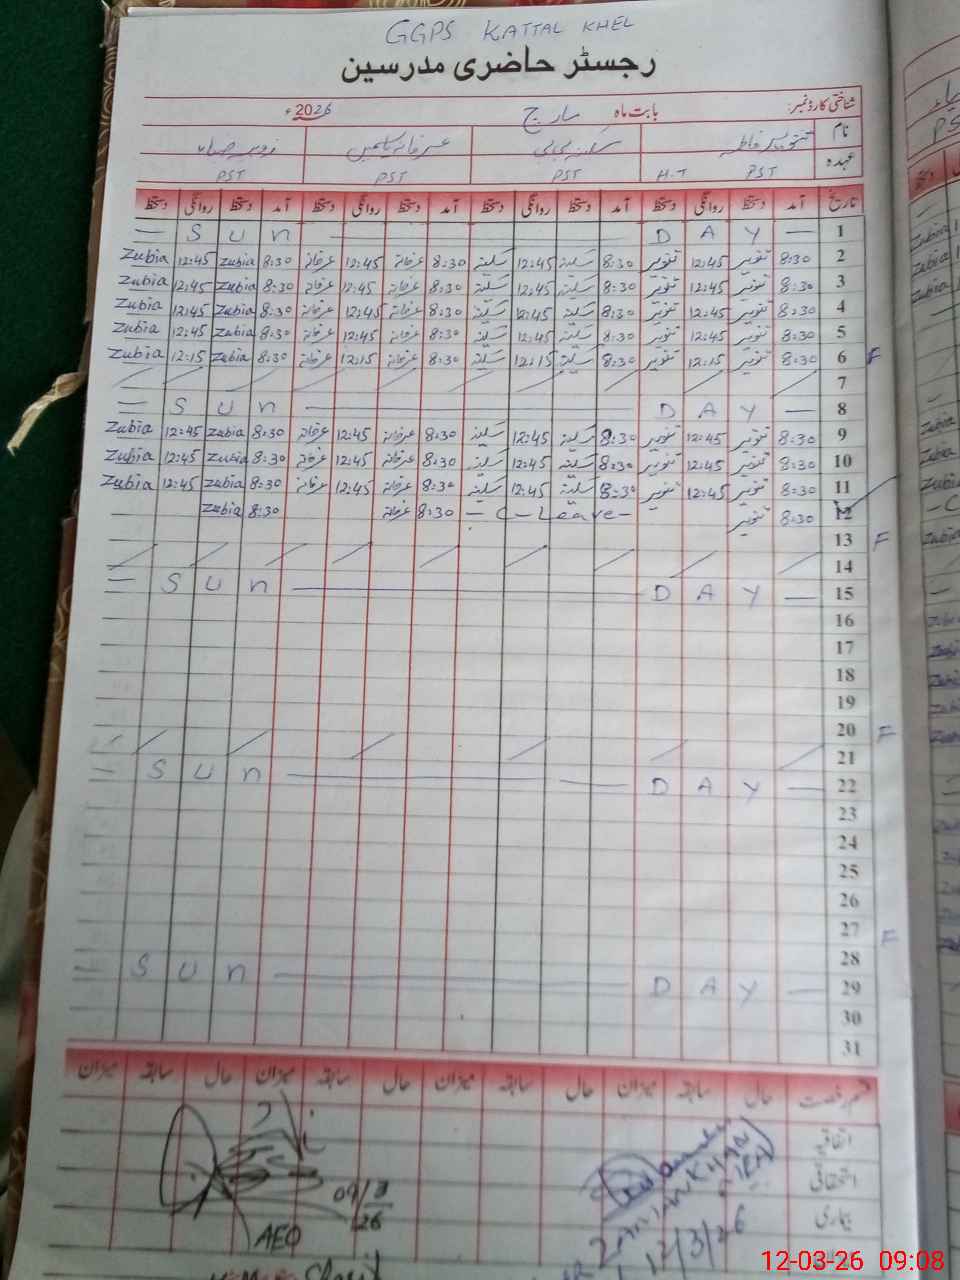 GGPS KATTAL KHEL
رجسٹر حاضری مدرسین
شناختی کارڈ نمبر: بابت ماہ مارچ 2026ء
نام تنویر فاطمہ سکینہ بی بی عرفانہ یاسمین
عہدہ PST H.T PST PST PST
تاریخ آمد دستخط روانگی دستخط آمد دستخط روانگی دستخط آمد دستخط روانگی دستخط آمد دستخط روانگی دستخط
1 — S U N — D A Y —
2 8:30 تنویر 12:45 تنویر 8:30 سکینہ 12:45 سکینہ 8:30 عرفانہ 12:45 عرفانہ 8:30 Zubia 12:45 Zubia
3 8:30 تنویر 12:45 تنویر 8:30 سکینہ 12:45 سکینہ 8:30 عرفانہ 12:45 عرفانہ 8:30 Zubia 12:45 Zubia
4 8:30 تنویر 12:45 تنویر 8:30 سکینہ 12:45 سکینہ 8:30 عرفانہ 12:45 عرفانہ 8:30 Zubia 12:45 Zubia
5 8:30 تنویر 12:45 تنویر 8:30 سکینہ 12:45 سکینہ 8:30 عرفانہ 12:45 عرفانہ 8:30 Zubia 12:45 Zubia
6 8:30 تنویر 12:15 تنویر 8:30 سکینہ 12:15 سکینہ 8:30 عرفانہ 12:15 عرفانہ 8:30 Zubia 12:15 Zubia F
7
8 — S U N — D A Y —
9 8:30 تنویر 12:45 تنویر 8:30 سکینہ 12:45 سکینہ 8:30 عرفانہ 12:45 عرفانہ 8:30 Zubia 12:45 Zubia
10 8:30 تنویر 12:45 تنویر 8:30 سکینہ 12:45 سکینہ 8:30 عرفانہ 12:45 عرفانہ 8:30 Zubia 12:45 Zubia
11 8:30 تنویر 12:45 تنویر 8:30 سکینہ 12:45 سکینہ 8:30 عرفانہ 12:45 عرفانہ 8:30 Zubia 12:45 Zubia
12 8:30 تنویر - C - Leave - 8:30 عرفانہ 8:30 Zubia
13 F
14
15 — S U N — D A Y —
16
17
18
19
20 F
21
22 — S U N — D A Y —
23
24
25
26
27 F
28
29 — S U N — D A Y —
30
31
قسم رخصت حال سابقہ میزان حال سابقہ میزان حال سابقہ میزان حال سابقہ میزان
اتفاقیہ
استحقاقی
بیماری
09/3/26
AEO
ZAMAN KHAN
12/3/26
12-03-26 09:08